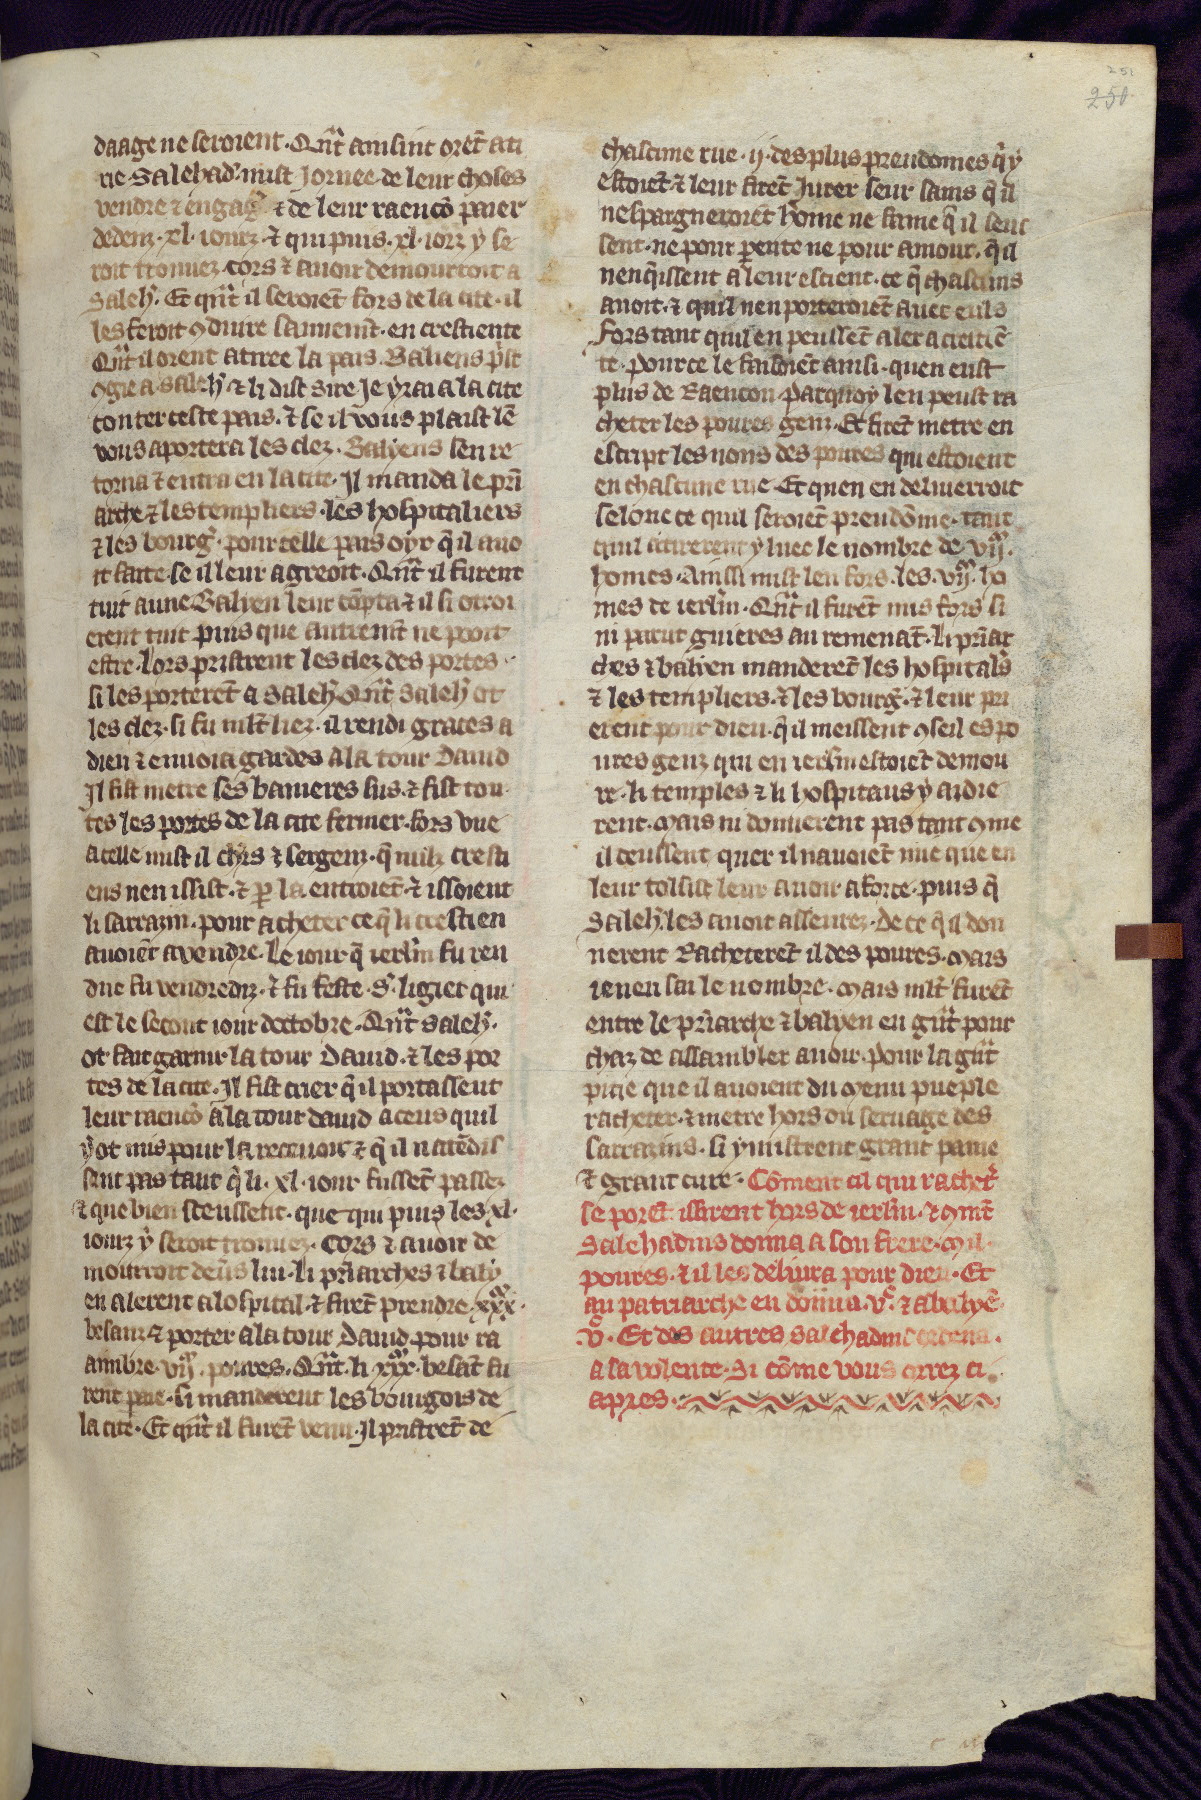 251
250
daage ne seroient. Qñt ainsint orēt ati
rie Salehad'. mist Jornee de leur choses
vendre ⁊ engag' ⁊ de leur raencō paier
dedenz .xl. iourz. ⁊ qui puis .xl. iorz y se
roit trouuez cors ⁊ auoir demourroit a
Saleh'. Et qñt il seroient fors de la cite. il
les feroit ꝯduire sauuemt̄. en crestiente
Qñt il orent atiree la pais. Baliens p̄st
ꝯgie a Saleh' ⁊ li dist Sire Je yrai a la cite
conter ceste pais. ⁊ se il vous plaist lē
vous aportera les clez. Balyens sen re
torna ⁊ entra en la cite. Il manda le pr̄i
arche ⁊ les templiers. les hospitaliers
⁊ les bourg'. pour celle pais oyr q̄ il auo
it faite. se il leur agreoit. Qñt il furent
tuit a une Balyen leur cōpta ⁊ il si otroi
erent tuit puis que autremt̄ ne pooit
estre. Lors pristrent les clez des portes.
si les porterēt a Saleh'. Qñt Saleh' ot
les clez. si fu mlt̄ liez. il rendi graces a
dieu ⁊ enuoia gardes a la tour Dauid
Il fist metre ses banieres sus. ⁊ fist tou
tes les portes de la cite fermer. fors vne
a celle mist il chrs ⁊ sergenz. q̄ nulz cresti
ens nen issist. ⁊ p̄ la entroiēt. ⁊ issoient
li sarrazin. pour acheter ce q̄ li crestien
auoiēt a vendre. Le iour q̄ ierlm̄ fu ren
due fu vendrediz. ⁊ fu feste .S'. ligier qui
est le secont iour doctobre. Qñt Saleh'.
ot fait garnir la tour Dauid. ⁊ les por
tes de la cite. Il fist crier q̄ il portassent
leur raencō a la tour dauid a ceus quil
y ot mis pour la receuoir ⁊ q̄ il natēdis
sent pas tant q̄ li .xl. iour fussēt passez
⁊ que bien seeussent. que qui puis les .xl.
iourz y seroit trouuez. Cors ⁊ auoir de
mourroit deūs lui. li pr̄iarches ⁊ baly
en alerent a lospital. ⁊ firēt prendre .xxx.
besanz ⁊ porter a la tour Dauid pour ra
aimbre .vij. poures. Qñt li xxx. besāt fu
rent paie. si manderent les bourgois de
la cite. Et qñt il furēt venu. Il pristrēt de
chascune rue .ij. des plus preudomes q̄ y
estoiēt ⁊ leur firēt Jurer seur sains q̄ il
nespargneroiēt home ne fame q̄ il seus
sent. ne pour parente ne pour amour. q̄ il
nenq̄issent a leur escient. ce q̄ chascuns
auoit. ⁊ quil nen porteroiēt auec euls
Fors tant quil en peussēt aler a crestiē
te. pour ce le faisoiēt ainsi. quen eust
plus de Raencon par quoy len peust ra
cheter les poures genz. Et firēt metre en
escript les nons des poures qui estoient
en chascune rue. Et quen en deliuerroit
selonc ce quil seroiēt preudōme. tant
quil atirerent y luec le nombre de .vij.
homes. Ainssi mist len fors. les .vij. ho
mes de ierlm̄. Qñt il furēt mis fors si
ni parut guieres au remenāt. Li pr̄iar
ches ⁊ balyen manderēt les hospital's
⁊ les templiers. ⁊ les bourg'. ⁊ leur pri
erent pour dieu. q̄ il meissent ꝯseil es po
ures genz qui en ierlm̄ estoiēt demou
re. li temples ⁊ li hospitaus y aidie
rent. Mais ni donnerent pas tant ꝯme
il deussent. quer il nauoiēt mie que en
leur tolsist leur auoir a force. puis q̄
Saleh'. les auoit asseurez. de ce q̄ il don
nerent Racheterēt il des poures. Mais
ie nen sai le nombre. Mais mlt̄ furēt
entre le pr̄iarche ⁊ balyen en gñt pour
chaz de assambler auoir. pour la gñt
pitie que il auoient du menu pueple
racheter. ⁊ metre hors du seruage des
sarrazins. si y mistrent grant paine
⁊ grant cure. Cōment cil qui rachet'
se porēt issirent hors de ierlm̄. ⁊ ꝯmēt
Salehadins donna a son frere. Mil.
poures. ⁊ il les deliura pour dieu. Et
au patriarche en donna .vͨ. ⁊ a balyē.
.vͨ. Et des autres salehadins ordena.
a sa volente. Si cōme vous orrez ci.
apres.